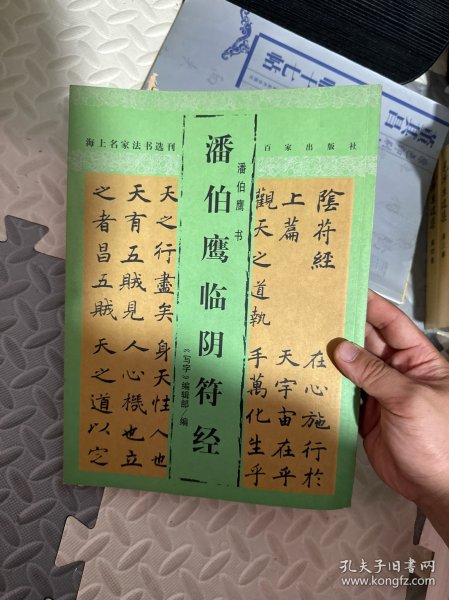 海上名家法书选刊
百家出版社
潘伯鹰临阴符经
潘伯鹰 书
《写字》编辑部/编
陰符經
上篇
觀天之道執
天之行盡矣
天有五賊見
之者昌五賊
在心施行於
天宇宙在乎
手萬化生乎
身天性人也
人心機也立
天之道以定
十七帖
董其昌
孔夫子旧书网
www.kongfz.com